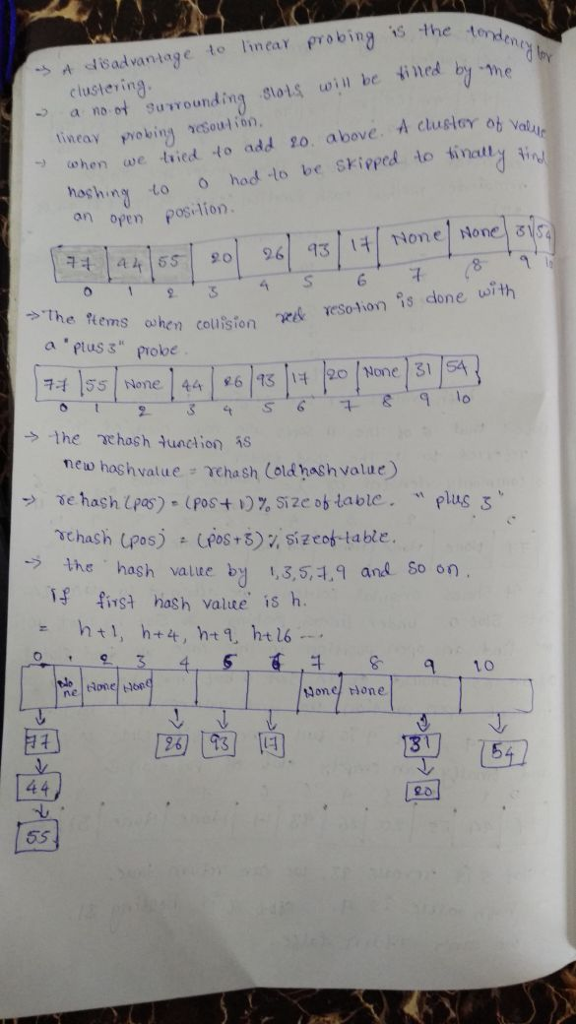 → A disadvantage to linear probing is the tendency for
clustering.
→ a no.of surrounding slots will be filled by the
linear probing resoution.
→ when we tried to add 20. above. A cluster of value
hashing to 0 had to be skipped to finally find
an open position.
77 44 55 20 26 93 17 None None 31 54
0 1 2 3 4 5 6 7 8 9 10
→ The items when collision resotion is done with
a "plus 3" probe.
77 55 None 44 26 93 17 20 None 31 54
0 1 2 3 4 5 6 7 8 9 10
→ the rehash function is
new hashvalue = rehash (old hash value)
→ rehash (pos) = (pos + 1) % size of table. "plus 3"
rehash (pos) = (pos+3) % sizeof table.
→ the hash value by 1,3,5,7,9 and so on.
If first hash value is h.
= h+1, h+4, h+9, h+16 ....
0 2 3 4 5 6 7 8 9 10
None None None None None
77 26 93 17 31 54
44 20
55